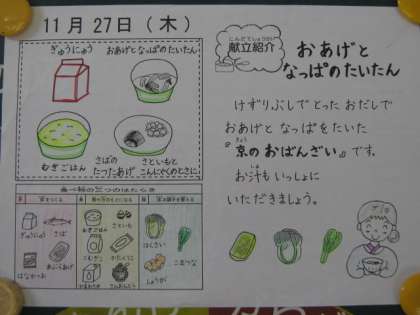 11月27日(木)
ぎゅうにゅう
おあげとなっぱのたいたん
むぎごはん
さばの
たつたあげ
さといもと
こんにゃくのときに
こんだてしょうかい
献立紹介
おあげと
なっぱのたいたん
けずりぶしでとった おだしで
おあげと なっぱをたいた
きょう
『京のおばんざい』です。
しる
お汁も いっしょに
いただきましょう。
食べ物の三つのはたらき
ぎゅうにゅう
さば
はなかつお
あぶらあげ
むぎごはん
さといも
こむぎこ
かたくりこ
こんにゃく
はくさい
こまつな
しょうが